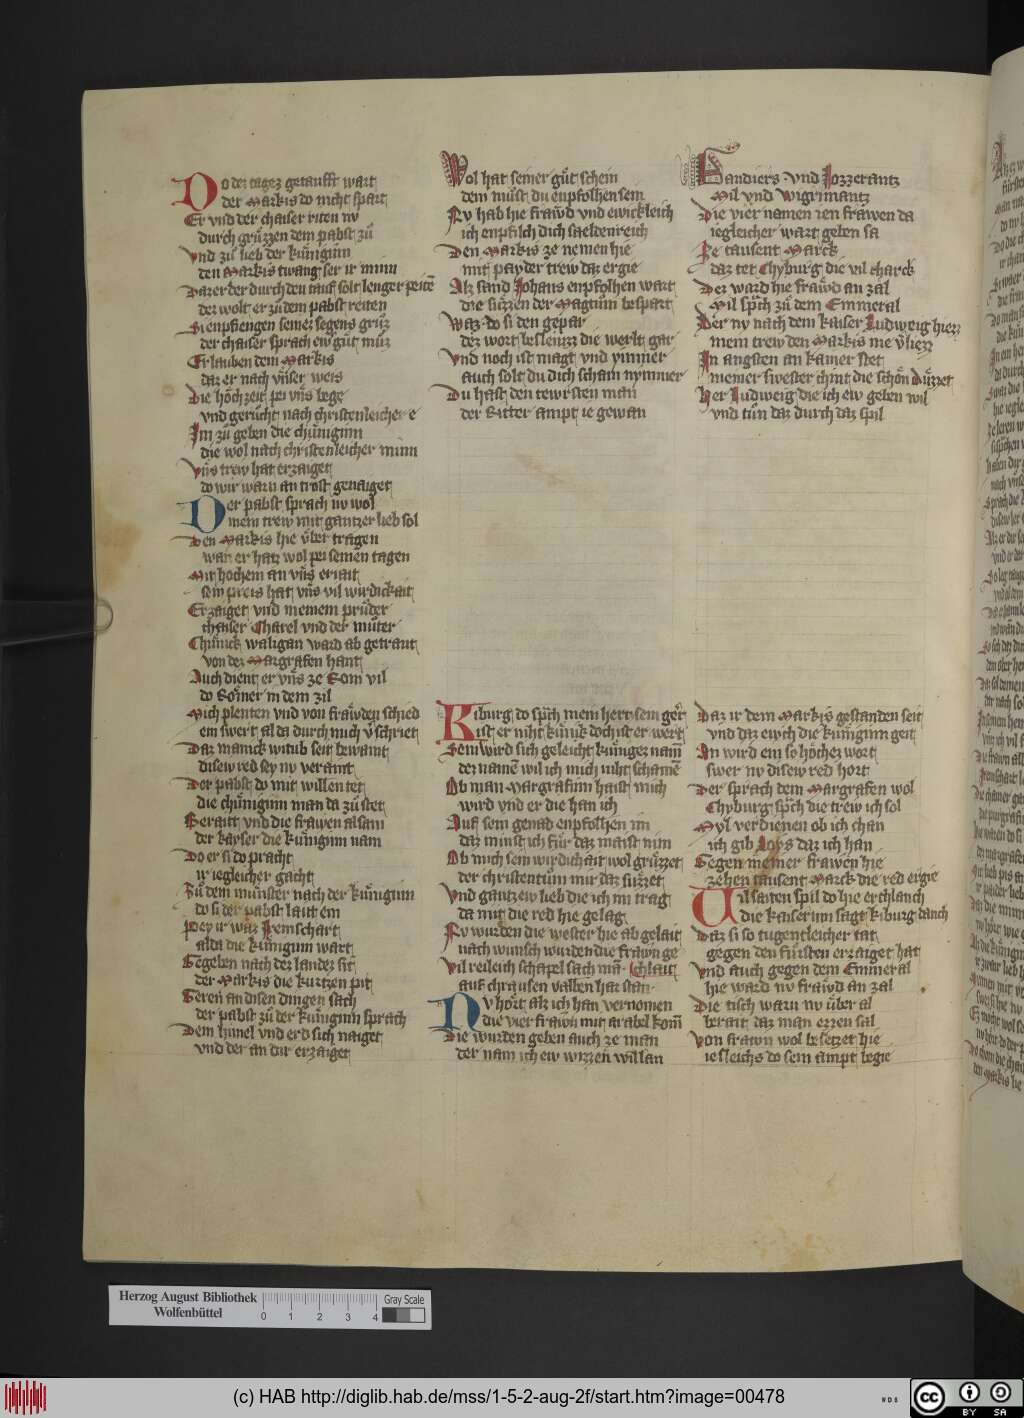 Do der tagez getaufft wart
der Markis do nicht spart
Er vnd der chaiser riten nv
durch grůzzen dem pabst zů
Vnd zů lieb der kůniginn
den Markis twang ser ir minn
Daz er der durch den tauf solt lenger peitē
der wolt er zů dem pabst reiten
Si enpfiengen seinez segens grůz
der chaiser sprach ew gůt můz
Erlauben dem Markis
daz er nach vnser weis
Die hôchzeit pei vns bege
vnd gerůcht nach christenleicher e
Im zů geben die chůniginn
die wol nach christenleicher minn
Vns trew hat erzaiget
do wir warn an trost genaiget
Der pabst sprach nv wol
mein trew mit gantzer lieb sol
Den Markis hie vber tragen
wan er hatz wol pei seinen tagen
Mit hochem an vns eriait
sein preis hat vns vil wirdickait
Erzaiget vnd meinem průder
chaiser Charel vnd der můter
Chůnick waligan ward ab getrant
von dez Margrafen hant
Auch dient er vns ze Rom vil
do Rômer in dem zil
Mich plenten vnd von frawden schied
ein swert al da durch mich vschriet
Daz manick witub seit bewaint
disew red sey nv veraint
Der pabst do mit willen tet
die chůniginn man da zů stet
Berait vnd die frawen alsam
der kayser die kůniginn nam
Do er si do pracht
ir iegleicher gacht
Zů dem můnster nach der kůniginn
do si der pabst lait ein
Pey ir waz Irmschart
alda die kůnigin wart
Gegeben nach dez landez sit
der Markis die kurtzen pit
Geren an disen dingen sach
der pabst zů der kůniginn sprach
Dem himel vnd erd sich naiget
vnd der an dir erzaiget
Wol hat seiner gůt schein
dem můst du enpfolhen sein
Nv hab hie frawd vnd ewickleich
ich enpfilch dich saeldenreich
Den Markis ze nemen hie
mit payder trew daz ergie
Alz sand Johans enpfolhen wart
die sůzzen der Magtum bespart
Waz do si den gepar
dez wort besleuzz die werlt gar
Vnd noch ist magt vnd ymmer
auch solt du dich scham nymmer
Du hast den tewrsten man
der Ritter ampt ie gewan
Kiburg do spch mein herr sein ger
ist er niht kůnick doch ist er wert
Sein wird sich geleicht kůnigez nam
dez namē wil ich mich niht schamē
Ob man Margrafinn haist mich
wird vnd er die han ich
Auf sein genad enpfolhen im
daz minst ich fůr daz maist nim
Ob mich sein wirdichait wol grůzzet
der christentům mir daz sůzzet
Vnd gantzew lieb die ich im trag
da mit die red hie gelag
Nv wurden die wester hie ab gelait
nach wunsch wurden die frawn ge
Vil reileich schapel sach mā chlait
auf chrausen valben har stan
Nv hôrt alz ich han vernomen
die vier frawn mit arabel kom
Die wurden geben auch ze man
der nam ich ew wizzen willan
Gandiers vnd Jozzerantz
Mil vnd Wigrimantz
Die vier namen ien frawen da
iegleicher wart geben sa
Ze tausent Marck
daz tet Chyburg die vil charck
Dez ward hie frawd an zal
Mil spch zů dem Emmeral
Der ny nach dem kaiser Ludweig hiez
mein trew den Markis nie vliezz
In angsten an kainer stet
meiner swester chint die schôn Důzzet
Her Ludweig die ich ew geben wil
vnd tůn daz durch daz spil
Daz ir dem Markis gestanden seit
vnd daz ewch die kůniginn geit
An wird ein so hôchez wort
swer nv disew red hort
Der sprach dem Margrafen wol
Chyburg spch die trew ich sol
Myl verdienen ob ich chan
ich gib Loys daz ich han
Gegen meiner frawen hie
zehen tausent Marck die red ergie
Vil saiten spil do hie erchlanch
die kaiserinn sagt kiburg danch
Daz si so tugentleicher tat
gegen den fůrsten erzaiget hat
Vnd auch gegen dem Emmeral
hie ward nv frawd an zal
Die tisch warn nv ůber al
berait daz man ezzen sal
Von frawn wol besetzet hie
iesleichs do sein ampt begie
Herzog August Bibliothek
Wolfenbüttel
0 1 2 3 4
Gray Scale
(c) HAB http://diglib.hab.de/mss/1-5-2-aug-2f/start.htm?image=00478
WDB
cc BY SA